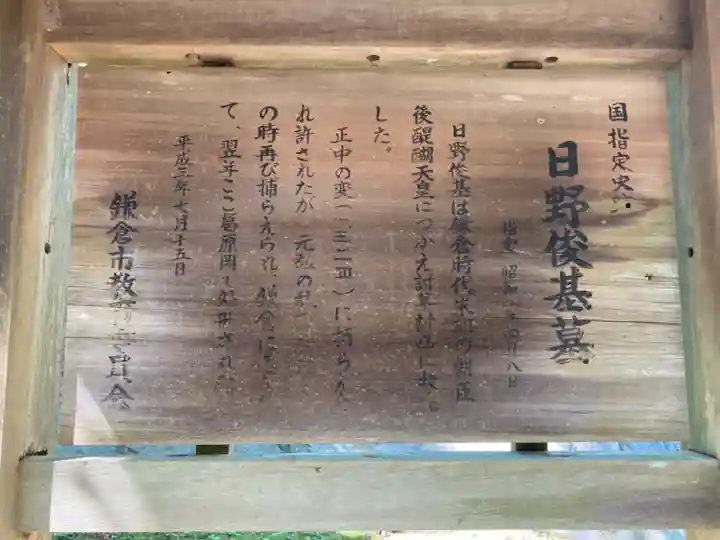 国指定史跡
日野俊基墓
指定 昭和 年四月八日
日野俊基は鎌倉時代末期の朝臣
後醍醐天皇につかえ討幕計画に
した。
正中の変(一三二四)に捕らえ
れ許されたが、元弘の
の時再び捕らえられ、鎌倉に
て、翌年ここ葛原岡で処刑され
平成三年七月十五日
鎌倉市教育委員会